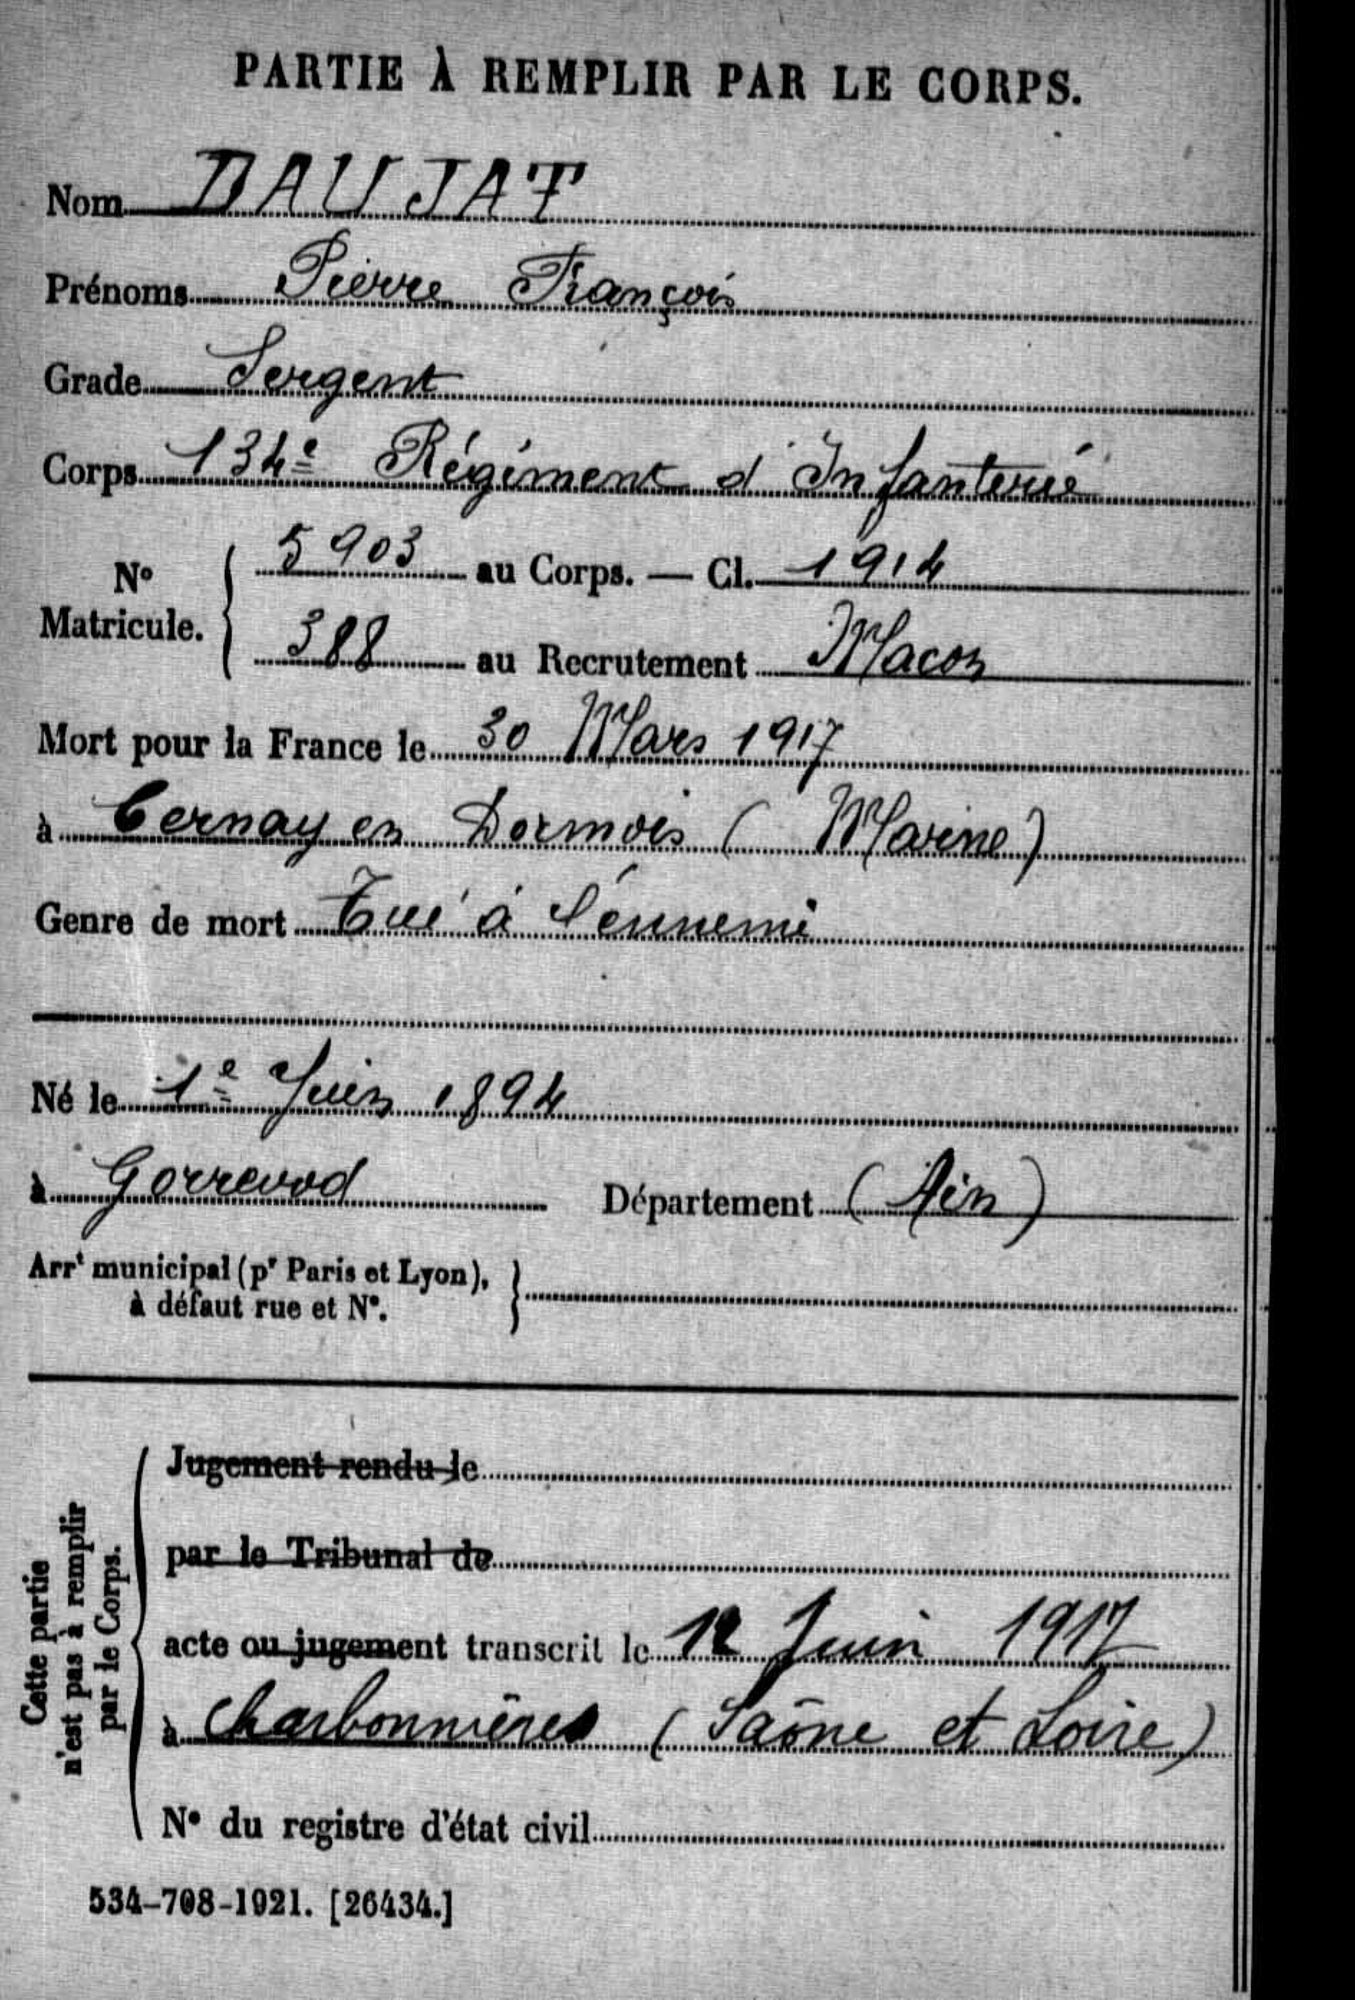 PARTIE À REMPLIR PAR LE CORPS.
Nom DAUJAT
Prénoms Pierre François
Grade Sergent
Corps 134e Régiment d'Infanterie
No Matricule. { 5903 au Corps. — Cl. 1914
388 au Recrutement Macon
Mort pour la France le 30 Mars 1917
à Cernay en Dormois (Marne)
Genre de mort Tué à l'ennemi
Né le 1e Juin 1894
à Gorrevod Département (Ain)
Arrt municipal (pr Paris et Lyon), }
à défaut rue et No.
Cette partie
n'est pas à remplir
par le Corps.
Jugement rendu le
par le Tribunal de
acte ou jugement transcrit le 12 Juin 1917
à Charbonnières (Saône et Loire)
No du registre d'état civil
534-708-1921. [26434.]